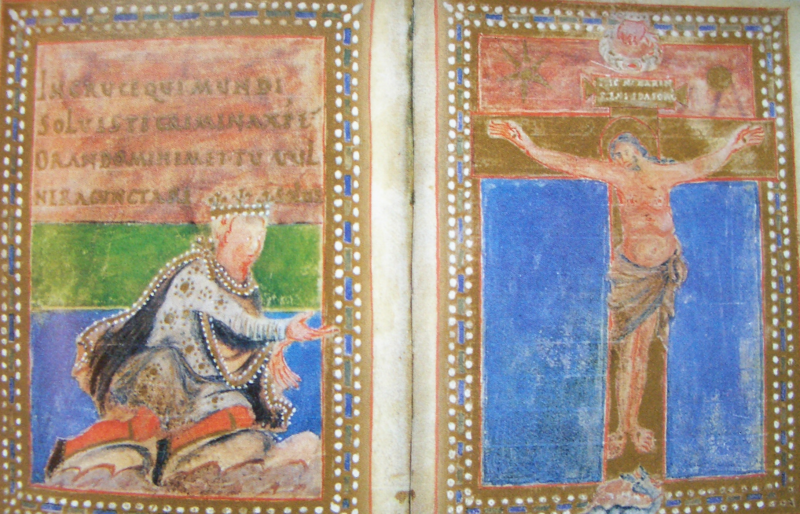 INCRUCEQUIMUNDI
SOLUISTICRIMINAXPE
ORANDOMIHIMET·TUVUL
NERACUNCTA